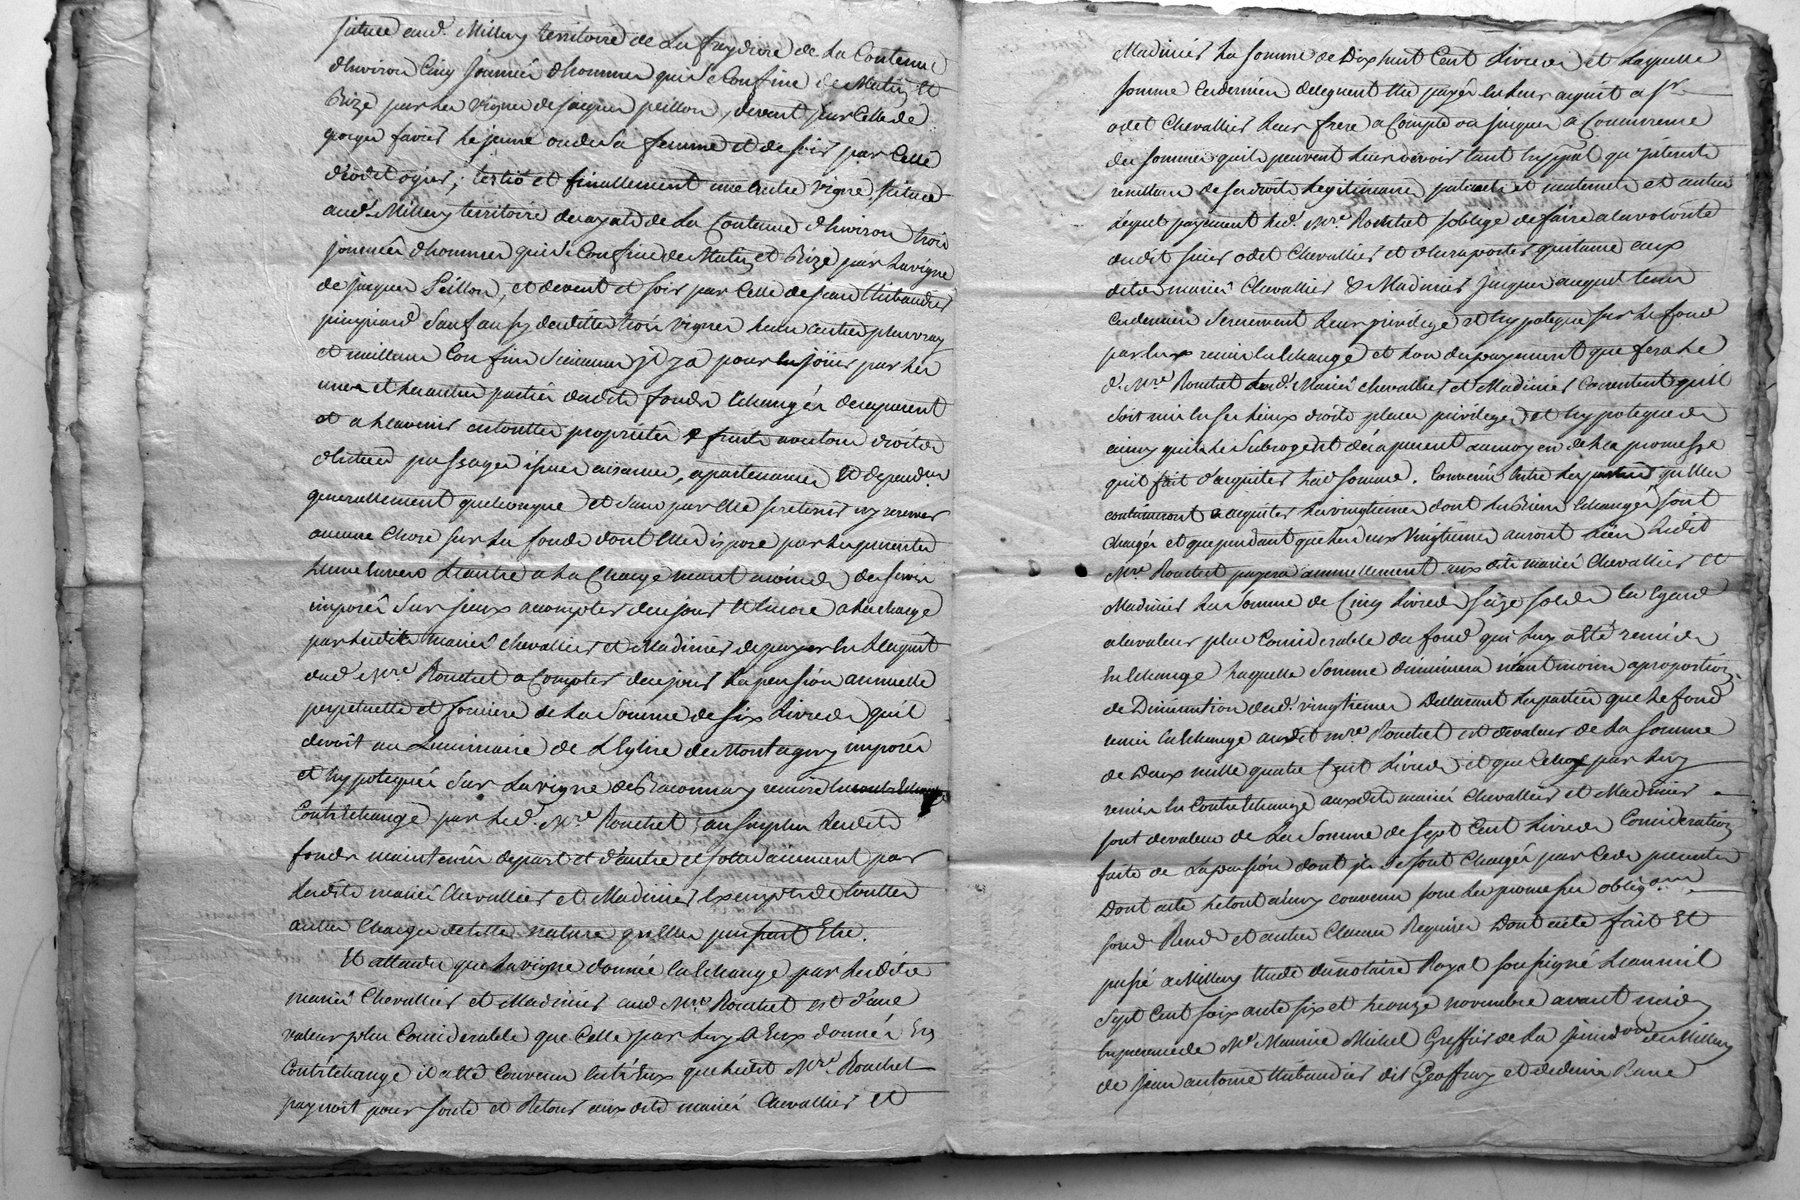 située aud. Millery territoire de La freydiere de La Contenue
d'Environ Cinq Journées d'hommes qui se Confine de Matin Et
Bize par les vignes de jacques peillon, devent par Celle de
favier le jeune ou de sa femme et de soir par Celle
d'odet ogier; tertio et finallement une autre vigne située
aud. Millery territoire de La Contenue d'Environ trois
journées d'hommes qui se Confine de Matin et Bize par La vigne
de jacques Peillon, et devent et soir par Celle de jean thibaudier
sauf auxd. desdittes trois vignes Leurs autres plus vray
et meilleurs Confins sienneur jl y a pour en joüir par Les
unes et Les autres parties desdits fonds Echangés des aprésent
et a L'avenir en toutte proprieté & fruits avec tous droits
d'Entrées passages issues aisances, apartenances Et dependces
generallement quelconques et sans par Elles se retenir ny reserver
aucune Chose sur Les fonds dont Elles dispose par Les presentes
L'une Envers L'autre a La Charge neant moins des servis
imposés Sur jceux acompter de ce jour Et Encore a La charge
par Lesdits mariés Chevallier et Madinier de payer En L'acquit
dud. Mre Rouchet a Compter de ce jour La pension annuelle
perpetuelle et fonciere de La Somme de six Livres qu'il
devoit au Luminaire de L'Eglise de Montagny imposée
et hypotequée Sur La vigne des Braconnay remise En contréchange
Contréchange par Led. Mre Rouchet; au surplus Lesdits
fonds maintenus de part et d'autre et sollidairement par
Lesdits mariés Chevallier et Madinier Exempts de touttes
autres Charges de telle nature qu'Elles puissent Etre.
Et attandu que La vigne donnée En Echange par Lesdits
mariés Chevallier et Madinier aud. Mre Rouchet est d'une
valeur plus Considerable que Celle par Luy a Eux donnée En
Contréchange il a Eté Convenu Entr'Eux que Ledit Mre Rouchet
payeroit pour soute et Retour auxdits mariés Chevallier et
Madinier La somme de Dix huit Cent Livres et Laquelle
somme Ces derniers deleguent Etre payée En Leur acquit a sr
odet Chevallier Leur frere a Compte ou jusques a Concurrence
des sommes qu'ils peuvent Leur devoir tant En ppal qu'jnterets
resultans de ses droits Legitimaires paternels et maternels et autres
Lequel payement Led. Mre Rouchet s'oblige de faire a La volonté
dudit sieur odet Chevallier et d'En raporter quitance aux
dits mariés Chevallier & Madinier jusques auquel tems
Ces derniers Reservent Leurs privilege et hypoteque sur Le fond
par Eux remis En Echange et Lors du payement que fera Le
d. Mre Rouchet Lesd. Mariés Chevallier et Madinier Consentent qu'il
soit mis En ses Lieux droits places privileges et hypoteques
ainsy qu'ils Le Subrogent des aprésent au moyen de La promesse
qu'il fait d'acquiter Lad. somme. Convenu Entre Les parties qu'Elles
continueront a acquiter Les vingtiemes dont Les Biens Echangés sont
chargés et que pendant que Les deux Vingtiemes auront Lieu Ledit
Mre Rouchet payera annuellement auxdits mariés Chevallier et
Madinier La Somme de Cinq Livres seize sols En Egard
a La valeur plus Considerable du fond qui Luy a Eté remis
En Echange Laquelle Somme diminuera néant moins a proportion
de Diminution desd. vingtiemes Declarant Les parties que Le fond
remis En Echange audit Mre Rouchet est de valeur de La somme
de Deux mille quatre Cent Livres et que Celuy par Luy
remis En Contréchange auxdits mariés Chevallier et Madinier
sont de valeur de La Somme de Sept Cent Livres Consideration
faite de La pension dont jls Se sont Chargés par Cesd. presentes
Dont acte Le tout ainsy convenu sous Les promesses obligaons
soum. Renon. et autres Clauses Requises Dont acte fait Et
passé a Millery Etude du notaire Royal soussigné L'an mil
Sept Cent soixante six et Le onze novembre avant midy
En presence de Me Maurice Michel Greffier de La jurisdon de Millery
de Jean antoine thibaudier dit Geoffray et de denis Rune